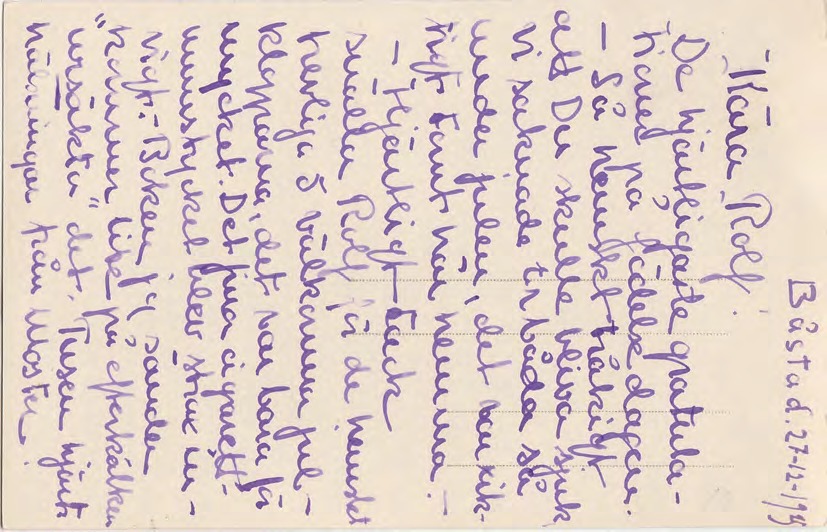 Båstad. 27-12-
Kära Rolf!
De hjärtligaste gratula-
tioner på födelsedagen.
– Så hemskt tråkigt
att Du skulle bliva sjuk
vi saknade Er båda så
under julen, det var rik-
tigt tomt här hemma. –
– Hjärtligt Tack
snälla Rolf för de hemskt
trevliga o välkomna jul-
klapparna, det var bara för
mycket. Det fina cigarett-
munstycket blev strax in-
vigt. Boken jag sänder
"kommer lite på efterkälken
ursäkta" det. Tusen hjärt.
hälsningar från Moster.